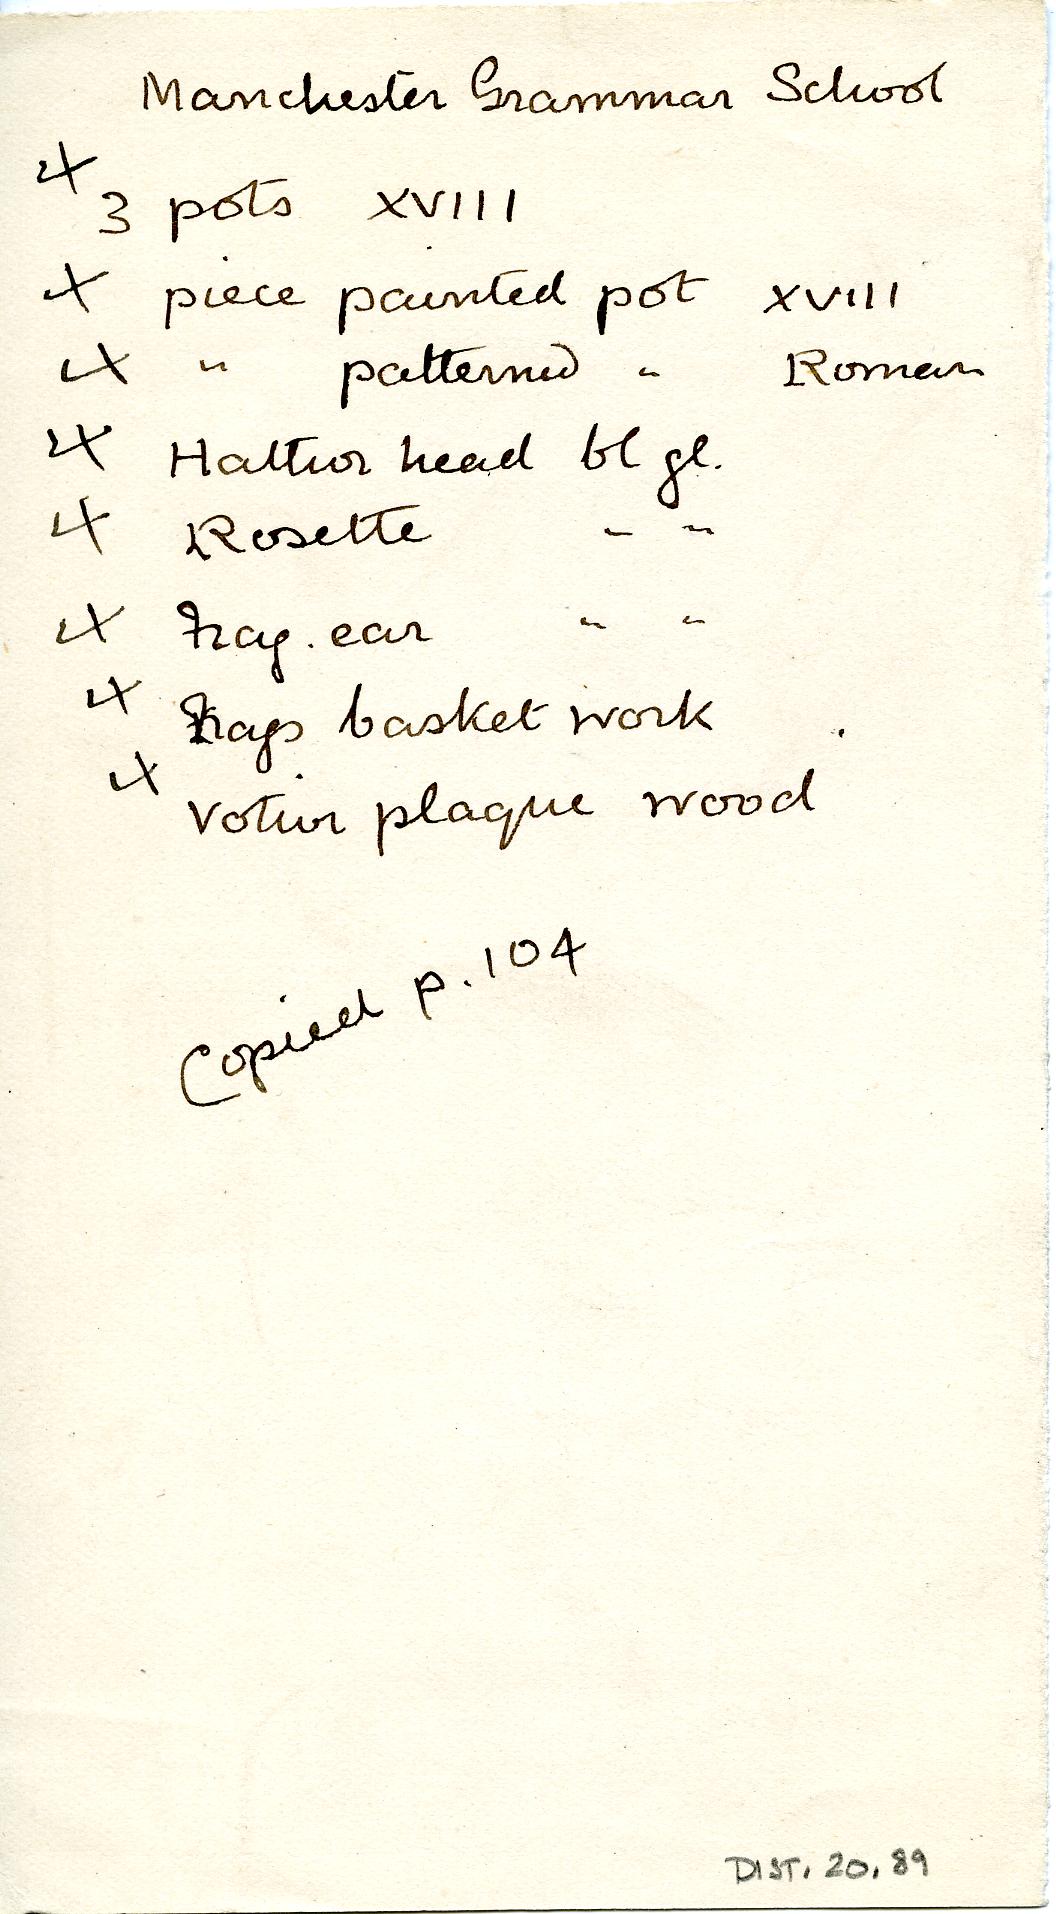 Manchester Grammar School
X 3 pots XVIII
X piece painted pot XVIII
X " patterned " Roman
X Hathor head bl gl.
X Rosette " "
X Frag. ear " "
X Frags basket work
X Votive plaque wood
Copied p. 104
DIST. 20. 89